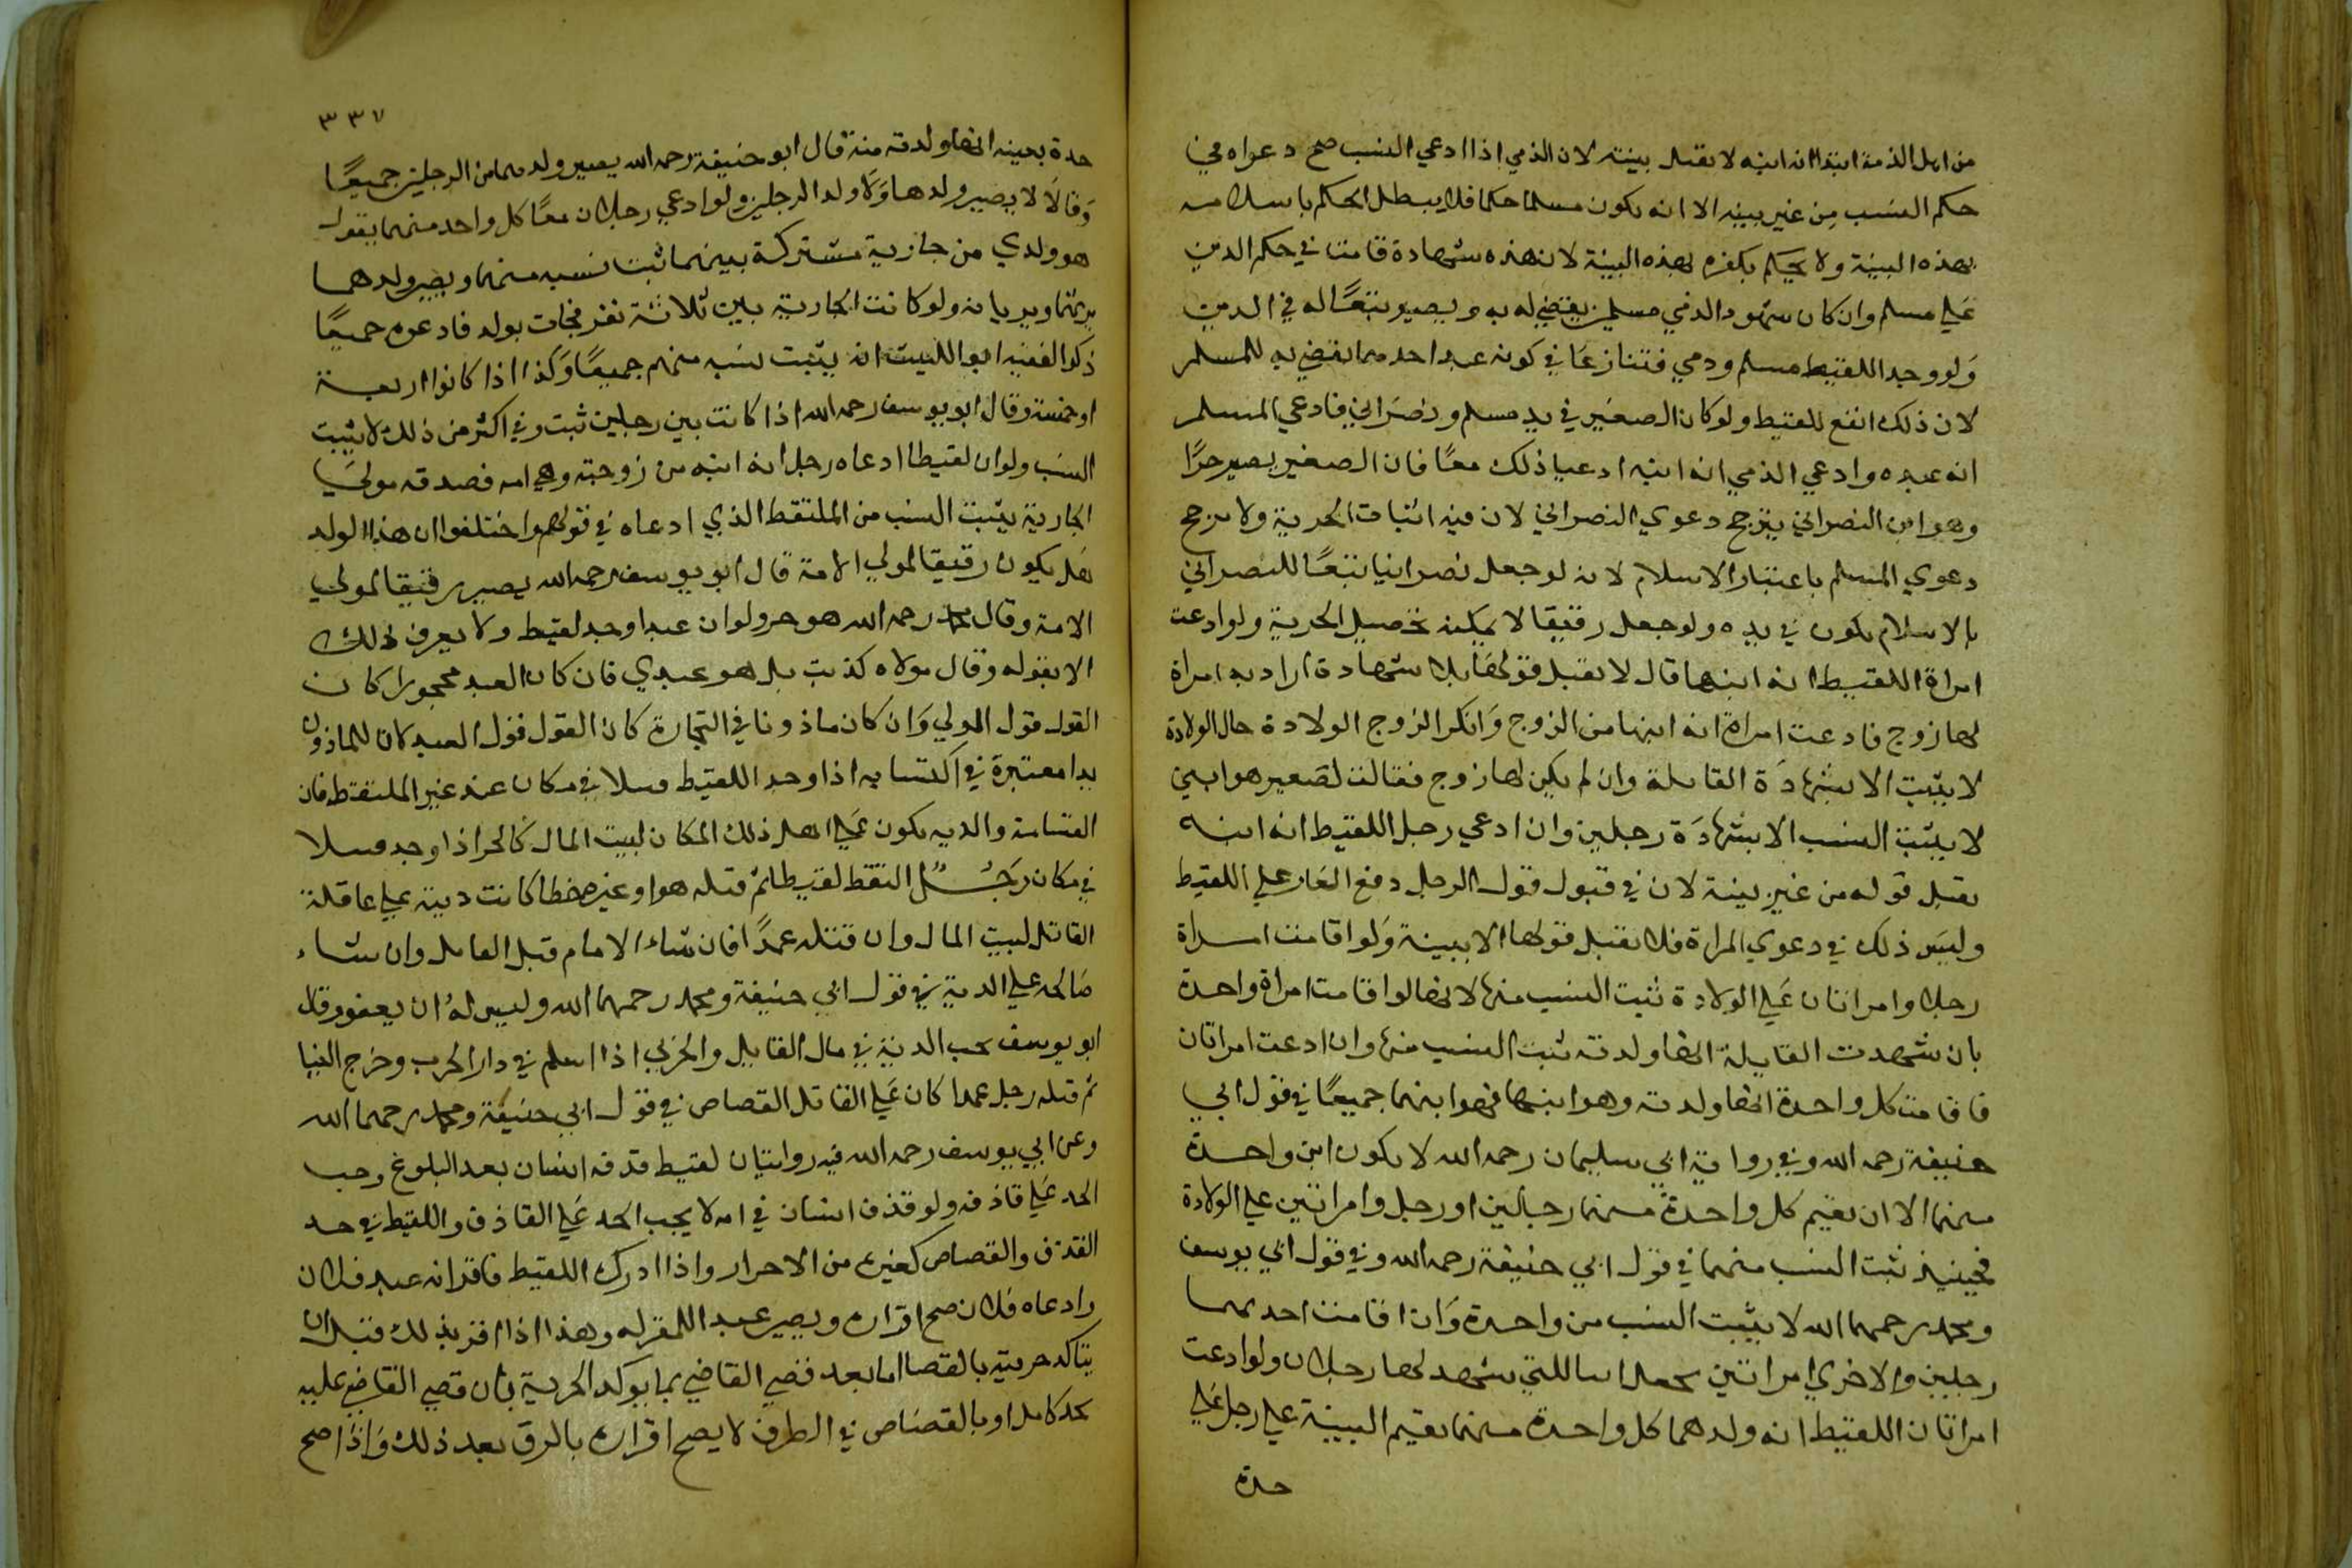 من اهل الذمة ابتدا انه ابنه لا تقبل بينته لان الذمي اذا ادعي النسب صح دعواه في
حكم النسب من غير بينه الا انه يكون مسلما حكما فلا يبطل الحكم باسلامه
بهذه البينة ولا يحكم بكفره بهذه البينة لان هذه شهادة قامت في حكم الدين
علي مسلم وان كان شهود الذمي مسلمين يقضي له به ويصير تبعًا له في الدين
ولو وجد اللقيط مسلم ودمي فتنازعا في كونه عبد احدهما يقضي به للمسلم
لان ذلك انفع للقيط ولو كان الصغير في يد مسلم ونصراني فادعي المسلم
انه عبده وادعي الذمي انه ابنه ادعيا ذلك معًا فان الصغير يصير حرًا
وهو ابن النصراني يترجح دعوي النصراني لان فيه اثبات الحرية ولا يرجح
دعوي المسلم باعتبار الاسلام لانه لو جعل نصرانيا تبعًا للنصراني
بالاسلام يكون في يده ولو جعل رقيقا لا يمكنه تحصيل الحرية ولو ادعت
امراة اللقيط انه ابنها قال لا تقبل قولها بلا شهادة اراد به امراة
لها زوج فادعت امراة انه ابنها من الزوج وانكر الزوج الولادة حال الولادة
لا يثبت الا بشهادة القابلة وان لم يكن لها زوج فقالت لصغير هو ابني
لا يثبت النسب الا بشهادة رجلين وان ادعي رجل اللقيط انه ابنه
تقبل قوله من غير بينة لان في قبول قول الرجل دفع العار علي اللقيط
وليس ذلك في دعوي المراة فلا تقبل قولها الا ببينة ولو اقامت امراة
رجلا وامراتان علي الولادة ثبت النسب منها لانها لو اقامت امراة واحدة
بان شهدت القابلة انها ولدته ثبت النسب منها وان ادعت امراتان
فاقامت كل واحدة انها ولدته وهو ابنها فهو ابنهما جميعًا في قول ابي
حنيفة رحمه الله وفي رواية ابي سليمان رحمه الله لا يكون ابن واحدة
منهما الا ان تقيم كل واحدة منهما رجلين او رجل وامراتين علي الولادة
فحينيذ ثبت النسب منهما في قول ابي حنيفة رحمه الله وفي قول ابي يوسف
ومحمد رحمهما الله لا يثبت النسب من واحدة وان اقامت احديهما
رجلين والاخري امراتين يجعل ابنا للتي شهد لها رجلان ولو ادعت
امراتان اللقيط انه ولدهما كل واحدة منهما تقيم البينة علي رجل علي
حدة
٣٣٧
حدة بعينه انها ولدته منه قال ابو حنيفة رحمه الله يصير ولدهما من الرجلين جميعًا
وقالا لا يصير ولدها ولا ولد الرجلين ولو ادعي رجلان معًا كل واحد منهما يقول
هو ولدي من جارية مشتركة بينهما ثبت نسبه منهما ويصير ولدهما
يرثهما ويرثانه ولو كانت الجارية بين ثلاثة نفر فجات بولد فادعوه جميعًا
ذكر الفقيه ابو الليث انه يثبت نسبه منهم جميعًا وكذا اذا كانوا اربعة
او خمسة وقال ابو يوسف رحمه الله اذا كانت بين رجلين ثبت وفي اكثر من ذلك لا يثبت
النسب ولو ان لقيطا ادعاه رجل انه ابنه من زوجته وهي امه فصدقه مولي
الجارية يثبت النسب من الملتقط الذي ادعاه في قولهم واختلفوا ان هذا الولد
هل يكون رقيقا لمولي الامة قال ابو يوسف رحمه الله يصير رقيقا لمولي
الامة وقال محمد رحمه الله هو حر ولو ان عبدا وجد لقيط ولا يعرف ذلك
الا بقوله وقال مولاه كذبت بل هو عبدي فان كان العبد محجورا كان
القول قول المولي وان كان ماذونا في التجارة كان القول قول العبد لان للماذون
يدا معتبرة في اكتسابه اذا وجد اللقيط قتيلا في مكان عند غير الملتقط فان
القسامة والديه يكون علي اهل ذلك المكان لبيت المال كالحر اذا وجد قتيلا
في مكان رجل التقط لقيطا ثم قتله هو او غيره خطا كانت ديته علي عاقلة
القاتل لبيت المال وان قتله عمدًا فان شاء الامام قتل القاتل وان شاء
صالحه علي الدية في قول ابي حنيفة ومحمد رحمهما الله وليس له ان يعفو وقال
ابو يوسف يجب الدية في مال القاتل والحربي اذا اسلم في دار الحرب وخرج الينا
ثم قتله رجل عمدا كان علي القاتل القصاص في قول ابي حنيفة ومحمد رحمهما الله
وعن ابي يوسف رحمه الله فيه روايتان لقيط قذفه انسان بعد البلوغ وجب
الحد علي قاذفه ولو قذف انسان في امه لا يجب الحد علي القاذف واللقيط في حد
القذف والقصاص كغيره من الاحرار واذا ادرك اللقيط فاقر انه عبد فلان
وادعاه فلان صح اقراره ويصير عبد اللمقر له وهذا اذا اقر بذلك قبل ان
يتاكد حريته بالقضا اما بعد قضي القاضي بما يوكد الحرية بان قضي القاضي عليه
بحد كامل او بالقصاص في الطرف لا يصح اقراره بالرق بعد ذلك واذا صح